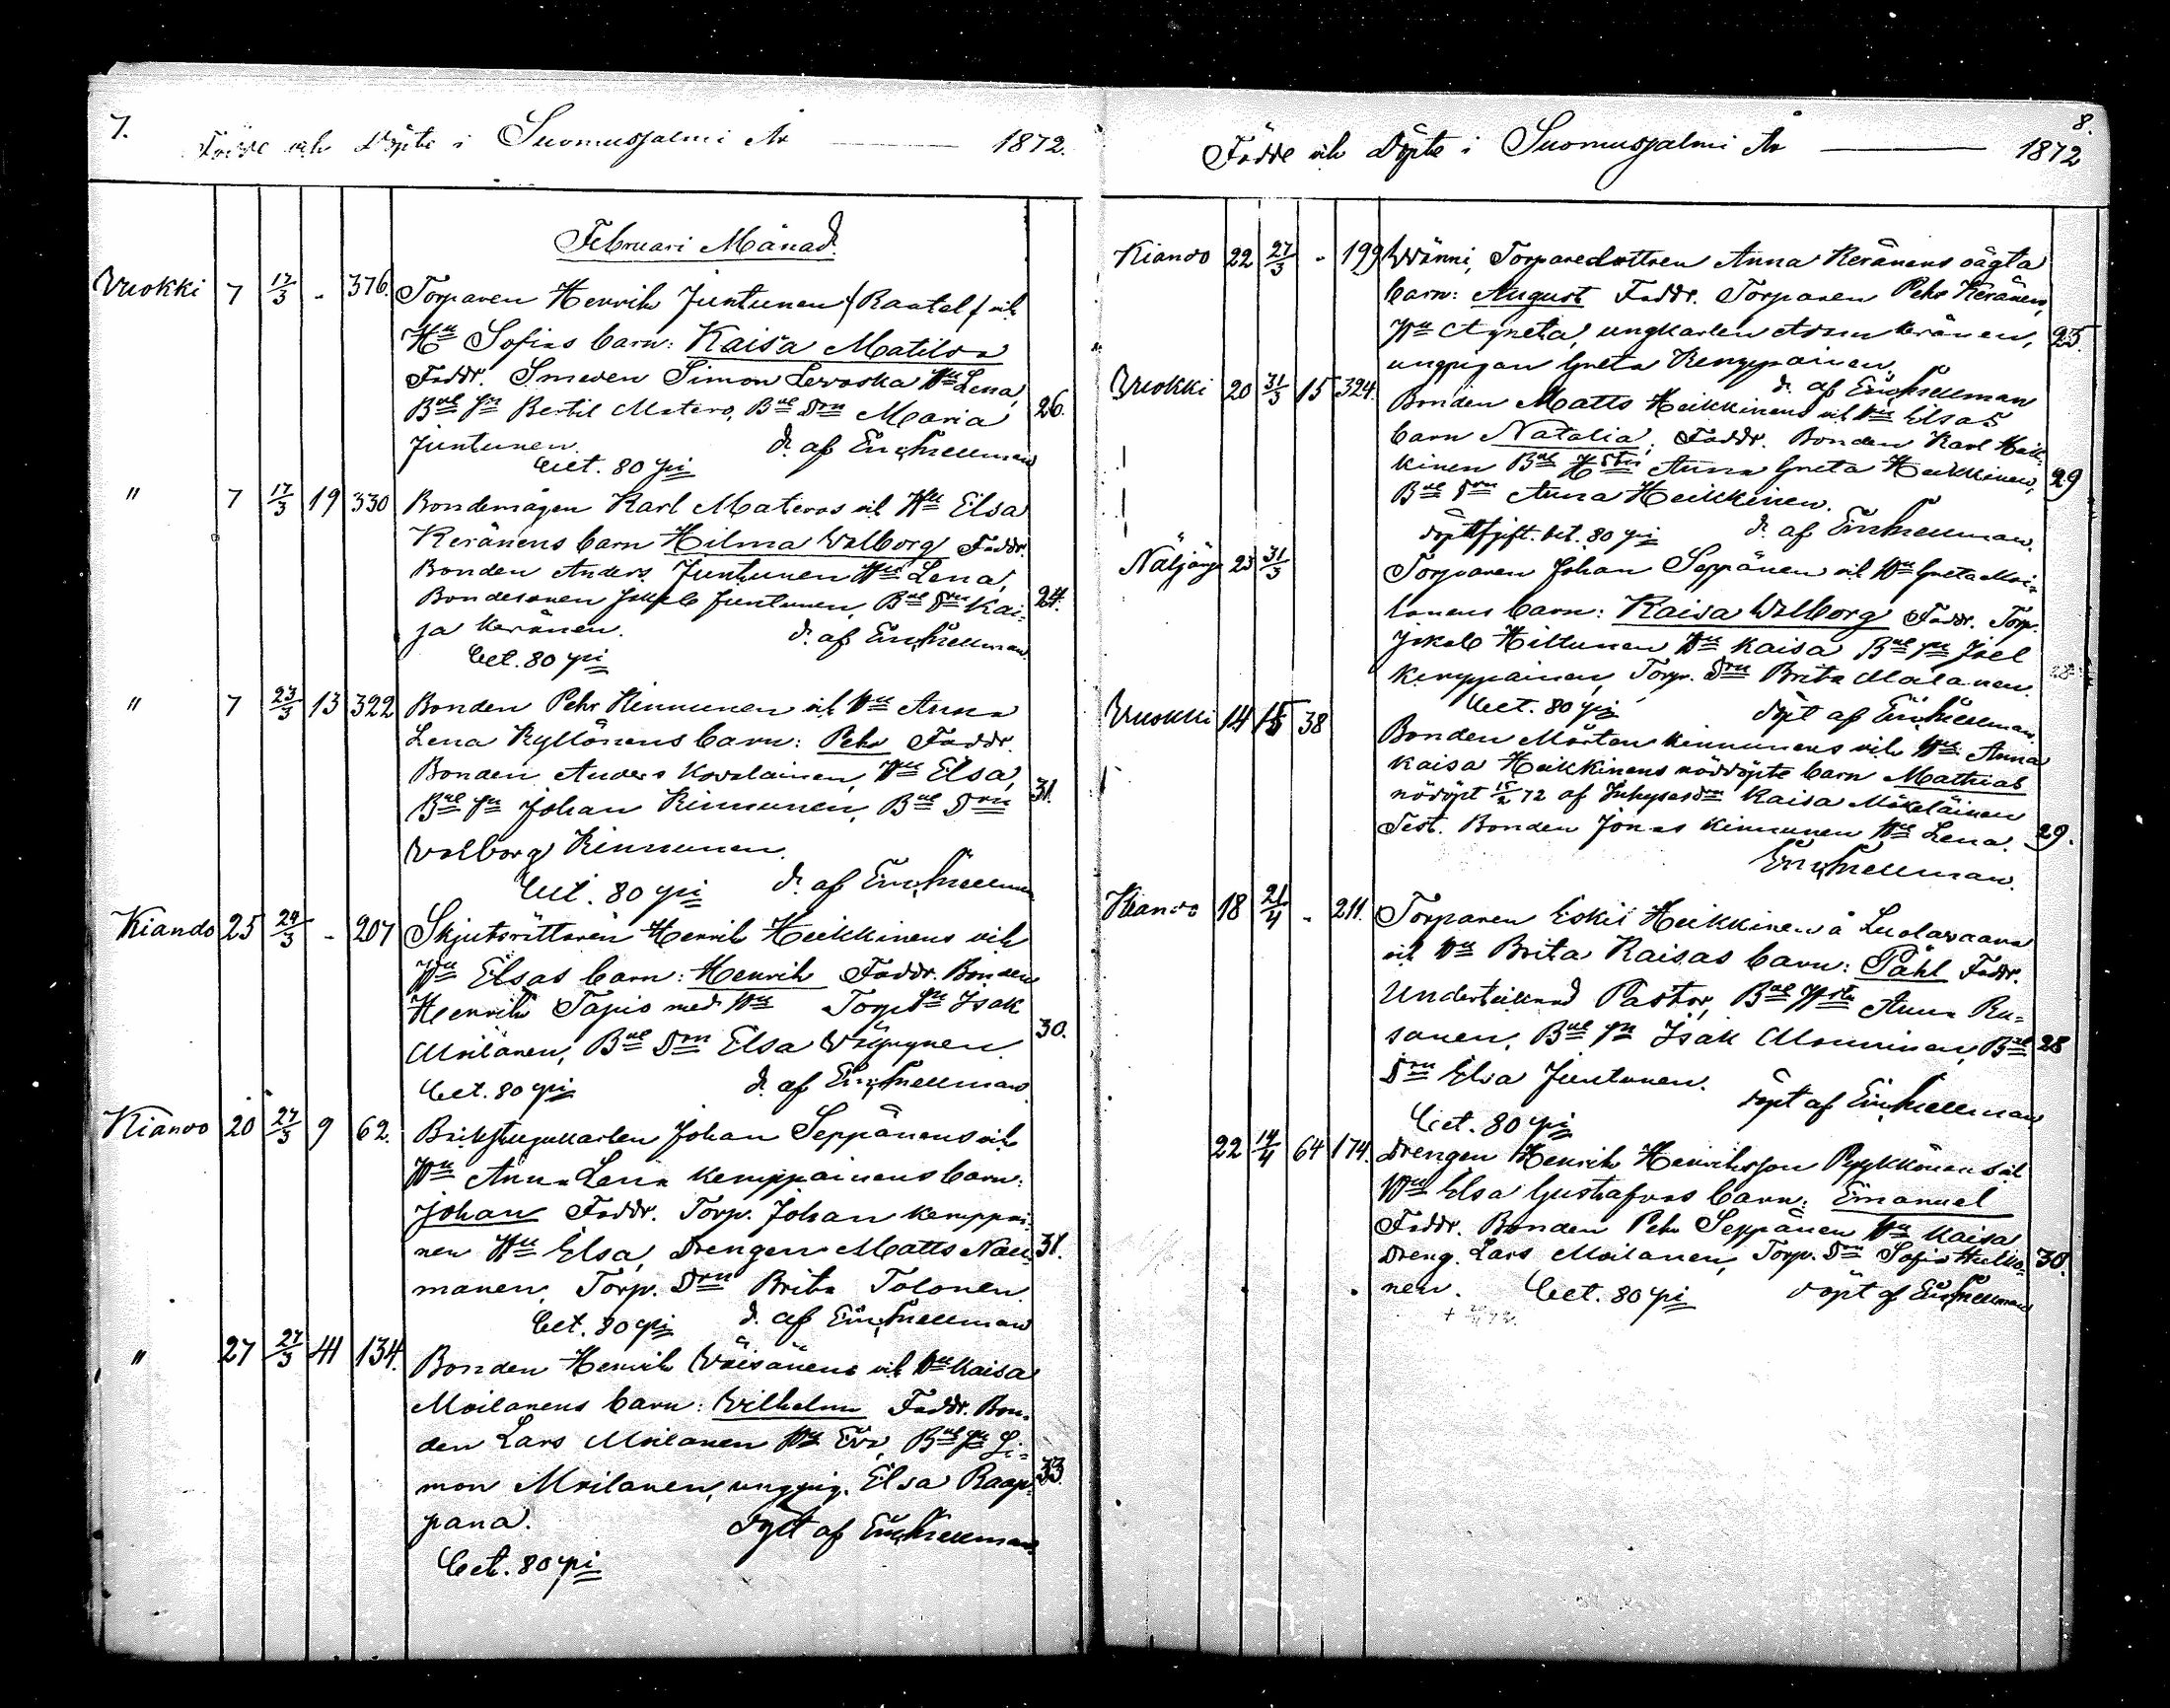 7.
Födde och Döpte i Suomussalmi År 1872.
Februari Månad.
Vuokki 7 17/3 - 376. Torparen Henrik Juntunen (Raatel) och
Hu Sofias barn: Kaisa Matilda
Faddr. Smeden Simon Levoska Hu Lena,
Bde Sn Bertil Matero, Bde Drn Maria 26.
Juntunen. d. af Em. Snellman
bet. 80 pi
" 7 17/3 19 330 Bondemågen Karl Materos och Hu Elsa
Keränens barn Hilma Walborg Faddr.
Bonden Anders Juntunen Hu Lena,
Bondesonen Jakob Juntunen, Bde Drn Kai- 24.
sa Keränen. d. af Em. Snellman.
bet. 80 pi
" 7 23/3 13 322 Bonden Pehr Kinnunen och Hu Anna
Lena Kyllönens barn: Pehr Faddr.
Bonden Anders Kovalainen, Hu Elsa,
Bde Sn Johan Kinnunen, Bde Drn 31.
Walborg Kinnunen.
bet. 80 pi d. af Em. Snellman
Kiando 25 24/3 - 207 Skjutsrättaren Henrik Heikkinens och
Hu Elsas barn: Henrik Faddr. Bonden
Henrik Tapio med Hu Torp Sn Isak
Moilanen, Bde Drn Elsa Väyrynen 30.
bet. 80 pi d. af Em. Snellman
Kiando 20 27/3 9 62. Backstugukarlen Johan Seppänens och
Hu Anna Lena Kemppainens barn:
Johan Faddr. Torp. Johan Kemppai-
nen Hu Elsa, Drengen Matts Nau- 31.
manen, Torp. Drn Brita Tolonen.
bet. 80 pi d. af Em. Snellman
" 27 27/3 41 134. Bonden Henrik Väisänens och Hu Kaisa
Moilanens barn: Wilhelm Faddr. Bon-
den Lars Moilanen Hu Eva, Bde Sn Si-
mon Moilanen, ungpig. Elsa Raap- 33.
pana. döpt af Em. Snellman
bet. 80 pi
8.
Födde och Döpte i Suomussalmi År 1872
Kiando 22 27/3 - 199 Wänni, Torparedottren Anna Keränens oägta
barn: August Faddr. Torparen Pehr Keränen,
Hu Agneta, ungkarlen Adam Keränen, 25.
ungpigan Greta Kemppainen.
d. af Em. Snellman
Vuokki 20 31/3 15 324. Bonden Matts Heikkinens och Hu Elsas
barn Natalia, Faddr. Bonden Karl Heik-
kinen Bde Hstu Anna Greta Heikkinen, 29
Bde Drn Anna Heikkinen.
döptafgift. bet. 80 pi d. af Em. Snellman.
Näljänge 23 31/3 Torparen Johan Seppänen och Hu Greta Moi-
lanens barn: Kaisa Walborg Faddr. Torp.
Jakob Hiltunen Hu Kaisa Bde Sn Joel
Kemppainen, Torp. Drn Brita Moilanen 28
bet. 80 pi döpt af Em. Snellman.
Vuokki 14 15 38 Bonden Mårten Kinnunens och Hu Anna
Kaisa Heikkinens nöddöpte barn Mathias
nödöpt 15/2 72 af Inhyses drn Kaisa Mikeläinen
Test. Bonden Jonas Kinnunen Hu Lena. 29.
Em. Snellman.
Kiando 18 21/4 - 211. Torparen Eskil Heikkinen å Luolavaara
och Hu Brita Kaisas barn: Påhl Faddr.
Undertecknad Pastor, Bde Hstu Anna Ru-
sanen, Bde Sn Isak Mouninen, Bde 28
Drn Elsa Juntunen.
bet. 80 pi döpt af Em. Snellman
22 14/4 64 174. Drengen Henrik Henriksson Pyykkönens och
Hu Elsa Gustafvas barn: Emanuel
Faddr. Bonden Pehr Seppänen Hu Kaisa
Dreng. Lars Moilanen, Torp. Drn Sofia Hulko- 30.
nen. bet. 80 pi döpt af Em. Snellman